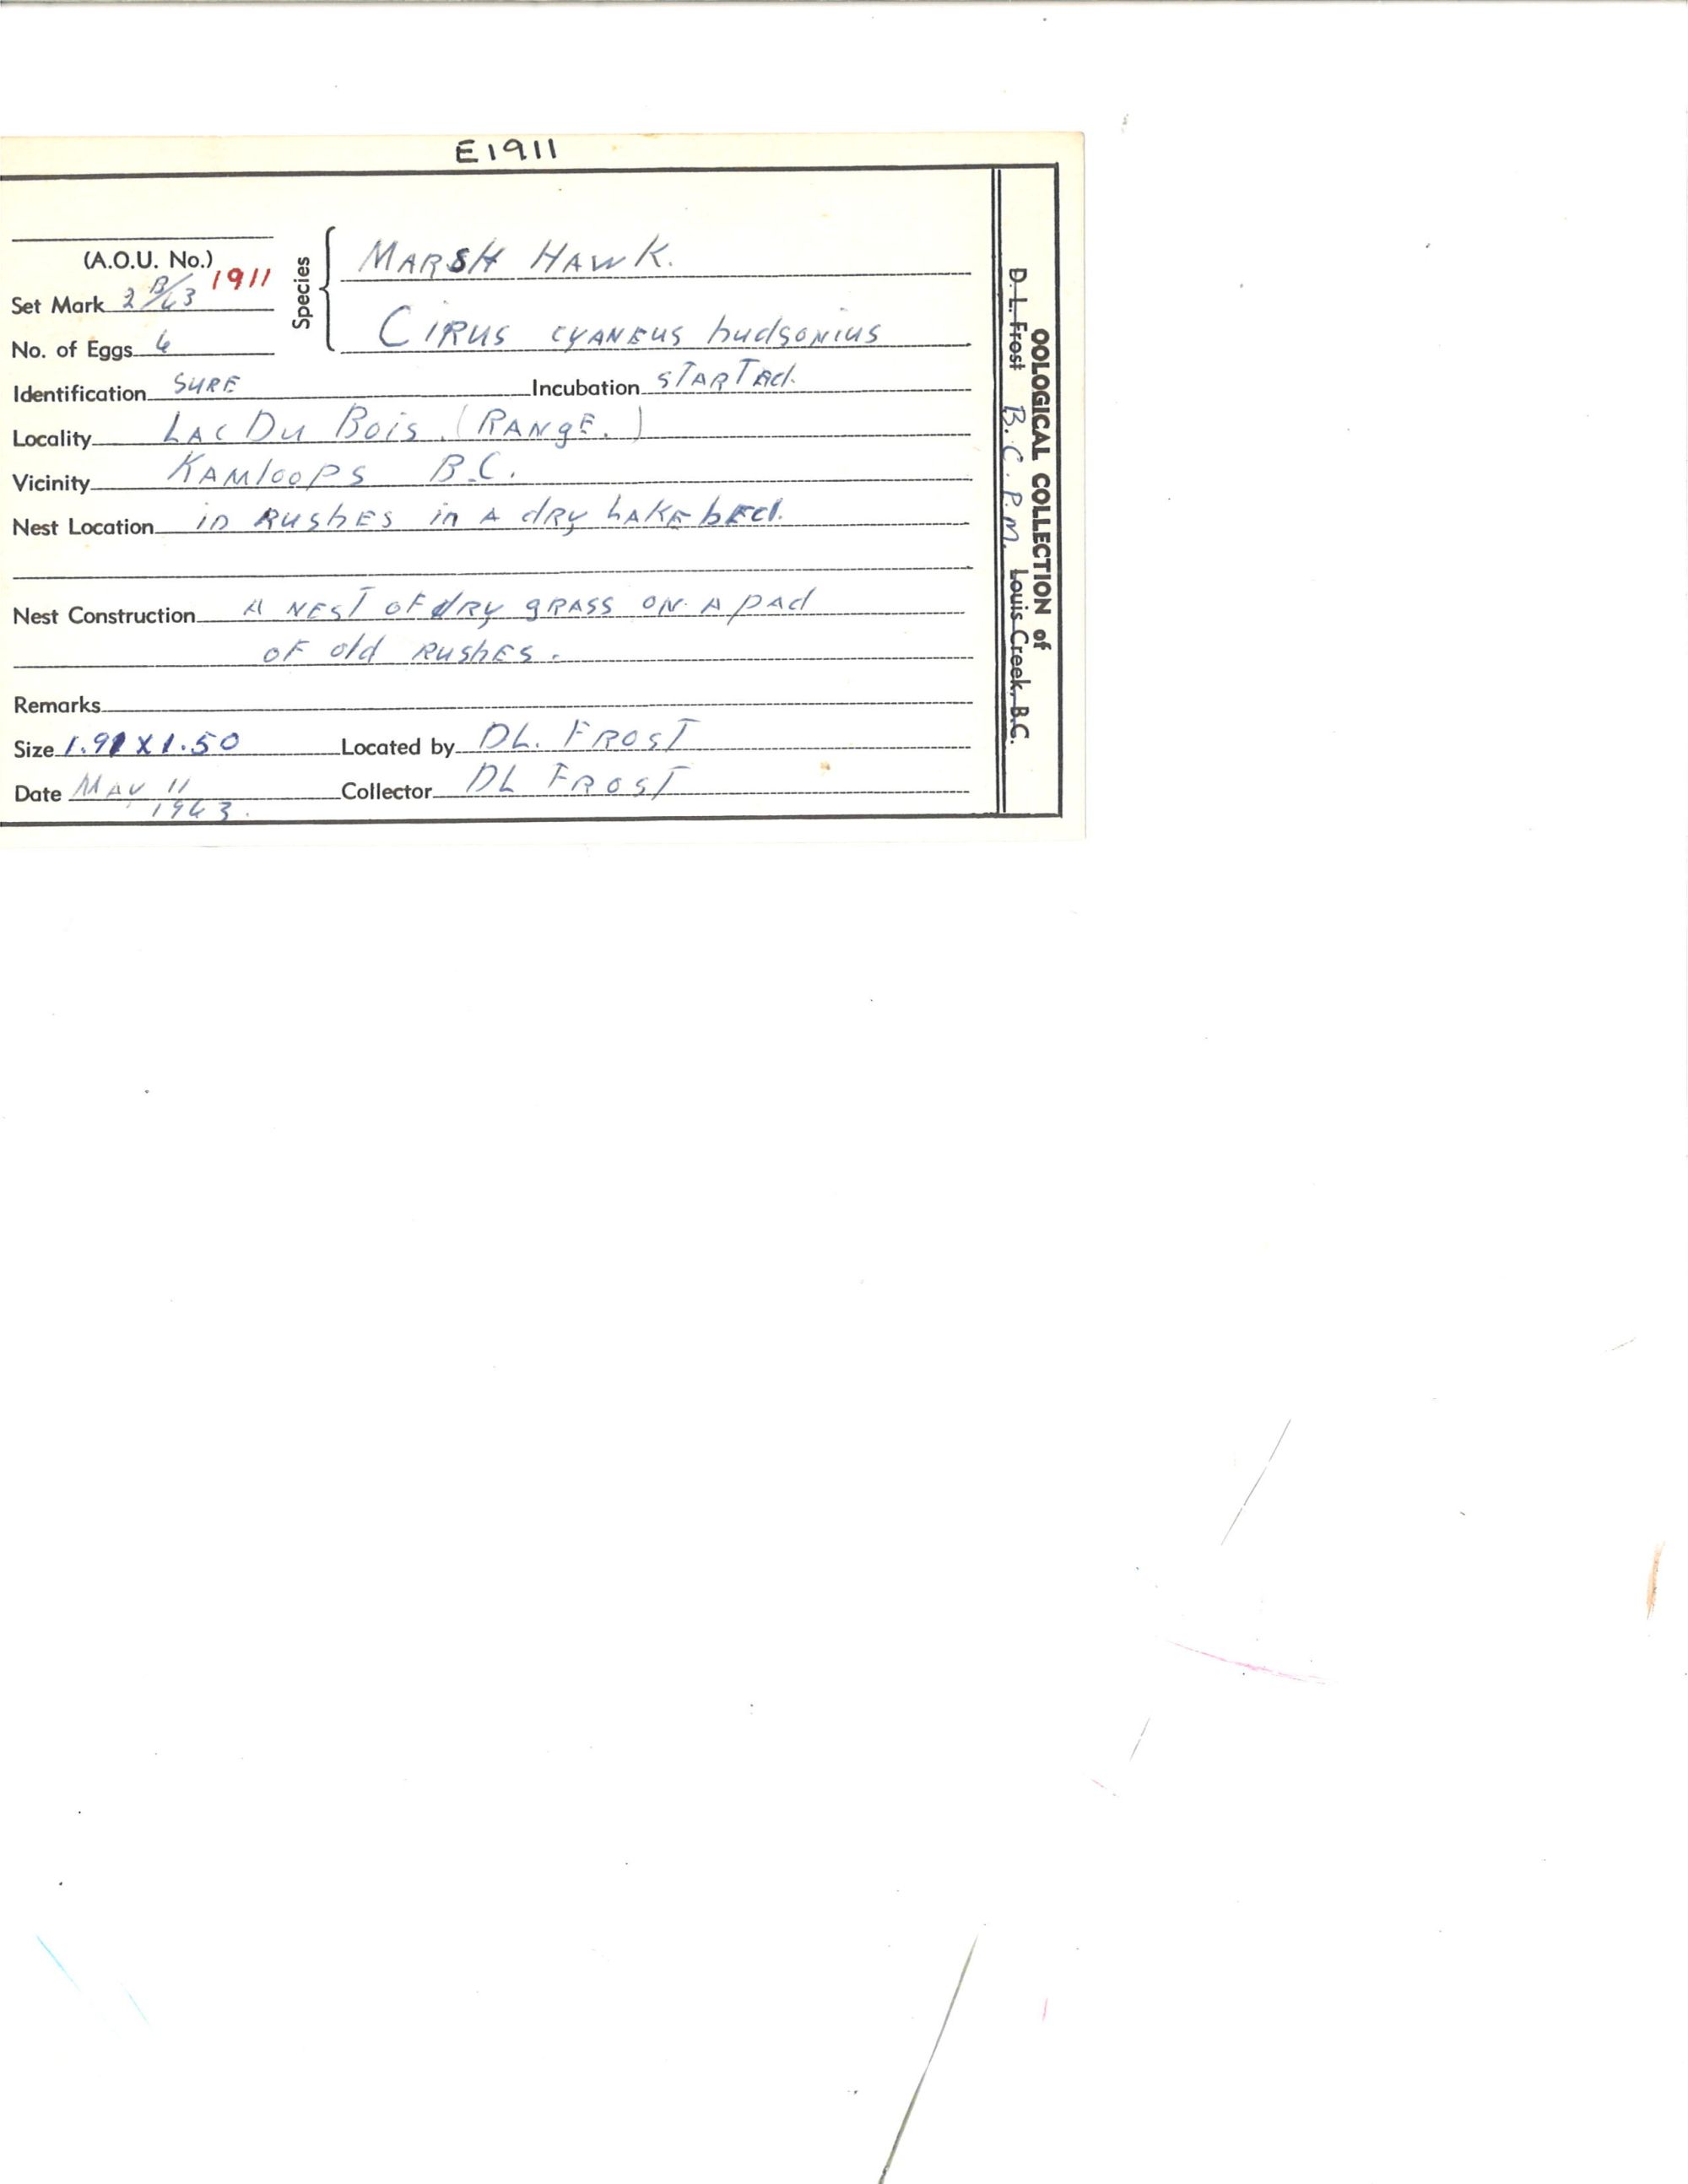 E1911
(A.O.U. No.)
1911
Set Mark 2 B/63
No. of Eggs 6
Species
MARSH HAWK.
CIRUS CYANEUS hudsonius
Identification SURE Incubation STARTEd.
Locality LAC Du Bois. (RANgE.)
Vicinity KAMlOOPS B.C.
Nest Location in RushES in A dRy LAKE bEd.
Nest Construction A NEST OF dRy gRASS ON A pAd
OF old RushES.
Remarks
Size 1.91 X 1.50 Located by DL. FROST
Date MAY 11 Collector DL FROST
1963.
OOLOGICAL COLLECTION of
D. L. Frost B.C.P.M. Louis Creek, B.C.